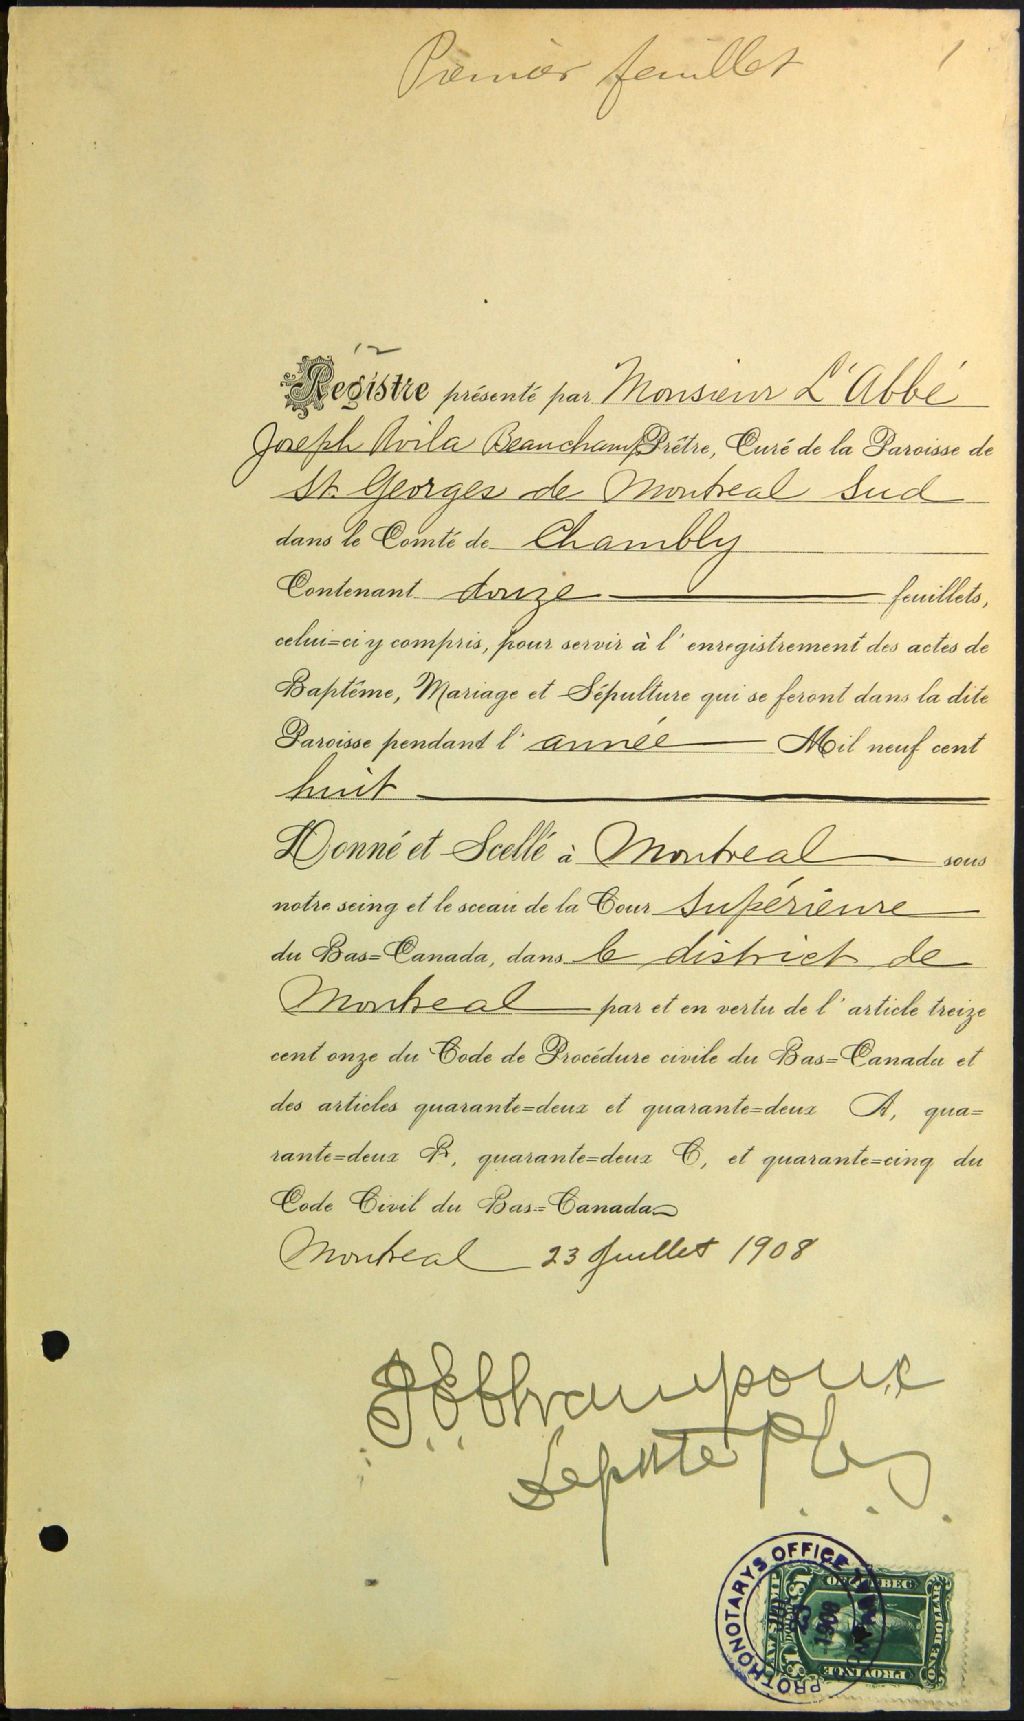 Premier feuillet 1
12
Registre présenté par Monsieur L'Abbé
Joseph Avila Beauchamp Prêtre, Curé de la Paroisse de
St. Georges de Montreal Sud
dans le Comté de Chambly
Contenant douze feuillets,
celui=ci y compris, pour servir à l'enregistrement des actes de
Baptême, Mariage et Sépulture qui se feront dans la dite
Paroisse pendant l'année Mil neuf cent
huit
Donné et Scellé à Montreal sous
notre seing et le sceau de la Cour Supérieure
du Bas=Canada, dans le district de
Montreal par et en vertu de l'article treize
cent onze du Code de Procédure civile du Bas=Canada et
des articles quarante=deux et quarante=deux A, qua=
rante=deux B, quarante=deux C, et quarante=cinq du
Code Civil du Bas=Canada
Montreal 23 Juillet 1908
Depute
PROTHONOTARYS OFFICE
23
1908
LAW STAMP
QUEBEC
PROVINCE
ONE DOLLAR
$1
$1